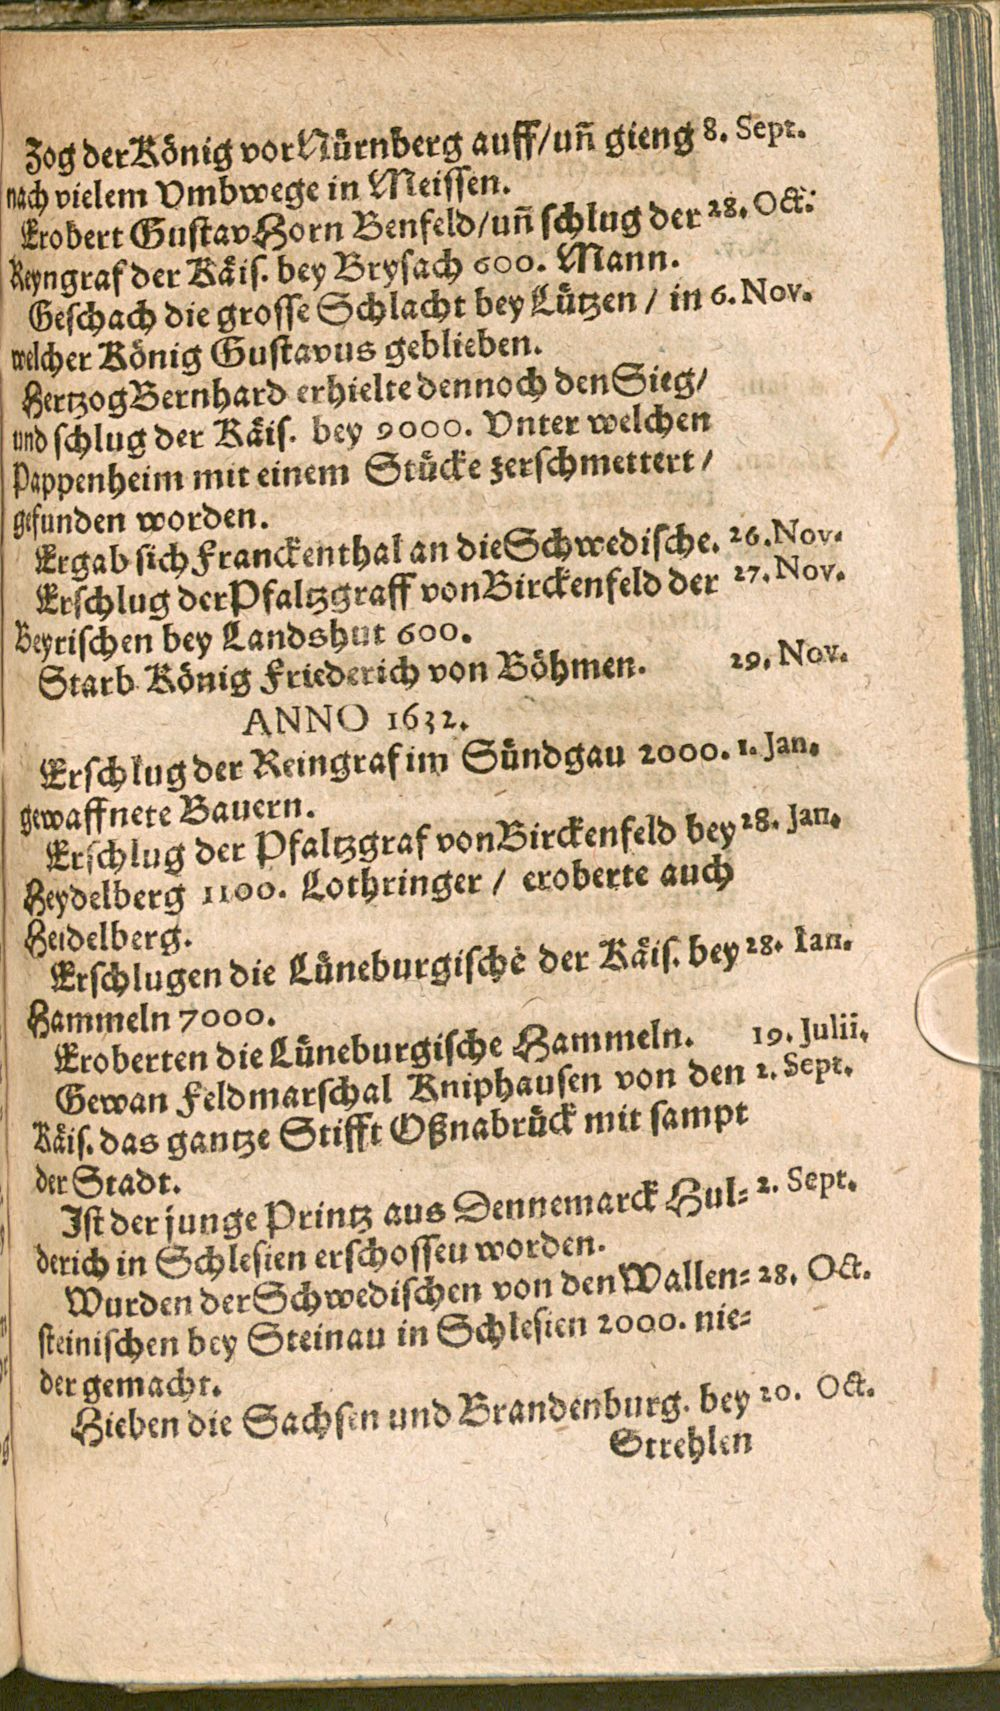 Zog der König vor Nürnberg auff/ uñ gieng 8. Sept.
nach vielem Vmbwege in Meissen.
Erobert Gustav Horn Benfeld/ uñ schlug der 28. Oct.
Reyngraf der Käis. bey Brysach 600. Mann.
Geschach die grosse Schlacht bey Lützen / in 6. Nov.
welcher König Gustavus geblieben.
Hertzog Bernhard erhielte dennoch den Sieg/
und schlug der Käis. bey 9000. Vnter welchen
Pappenheim mit einem Stücke zerschmettert /
gefunden worden.
Ergab sich Franckenthal an die Schwedische. 26. Nov.
Erschlug der Pfaltzgraff von Birckenfeld der 27. Nov.
Beyrischen bey Landshut 600.
Starb König Friederich von Böhmen. 29. Nov.
ANNO 1632.
Erschlug der Reingraf im Sündgau 2000. 1. Jan.
gewaffnete Bauern.
Erschlug der Pfaltzgraf von Birckenfeld bey 28. Jan.
Heydelberg 1100. Lothringer / eroberte auch
Heidelberg.
Erschlugen die Lüneburgische der Käis. bey 28. Ian.
Hammeln 7000.
Eroberten die Lüneburgische Hammeln. 19. Julii.
Gewan Feldmarschal Kniphausen von den 1. Sept.
Käis. das gantze Stifft Oßnabrück mit sampt
der Stadt.
Ist der junge Printz aus Dennemarck Hul= 2. Sept.
derich in Schlesien erschosseu worden.
Wurden der Schwedischen von den Wallen= 28. Oct.
steinischen bey Steinau in Schlesien 2000. nie=
der gemacht.
Hieben die Sachsen und Brandenburg. bey 20. Oct.
Strehlen